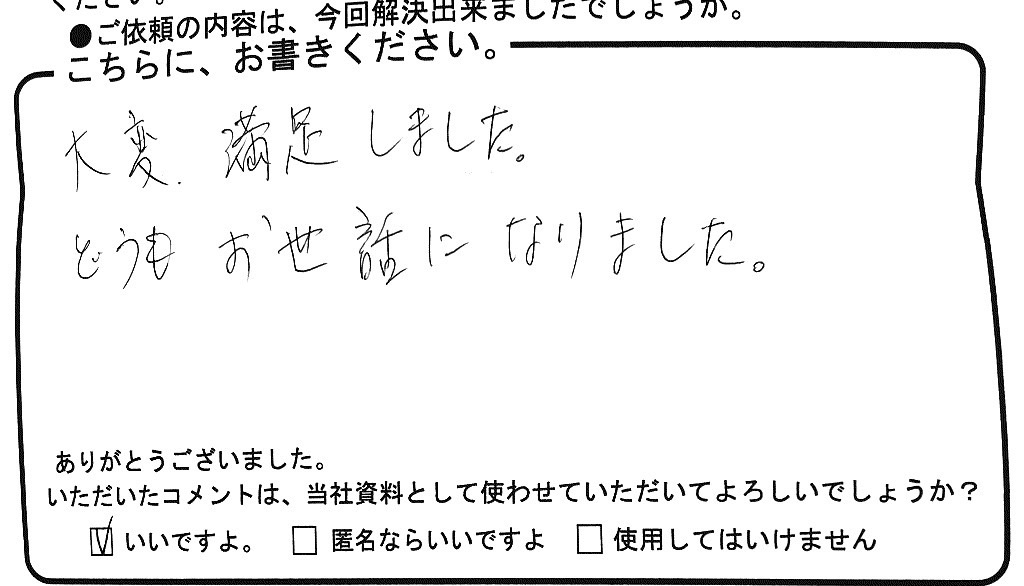 ください。
●ご依頼の内容は、今回解決出来ましたでしょうか。
こちらに、お書きください。
大変、満足しました。
どうも お世話に なりました。
ありがとうございました。
いただいたコメントは、当社資料として使わせていただいてよろしいでしょうか？
☑ いいですよ。 □ 匿名ならいいですよ □ 使用してはいけません